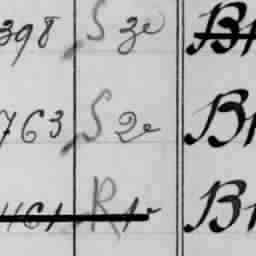 398 S 3e Br
763 S 2e Br
461 R 1e Br